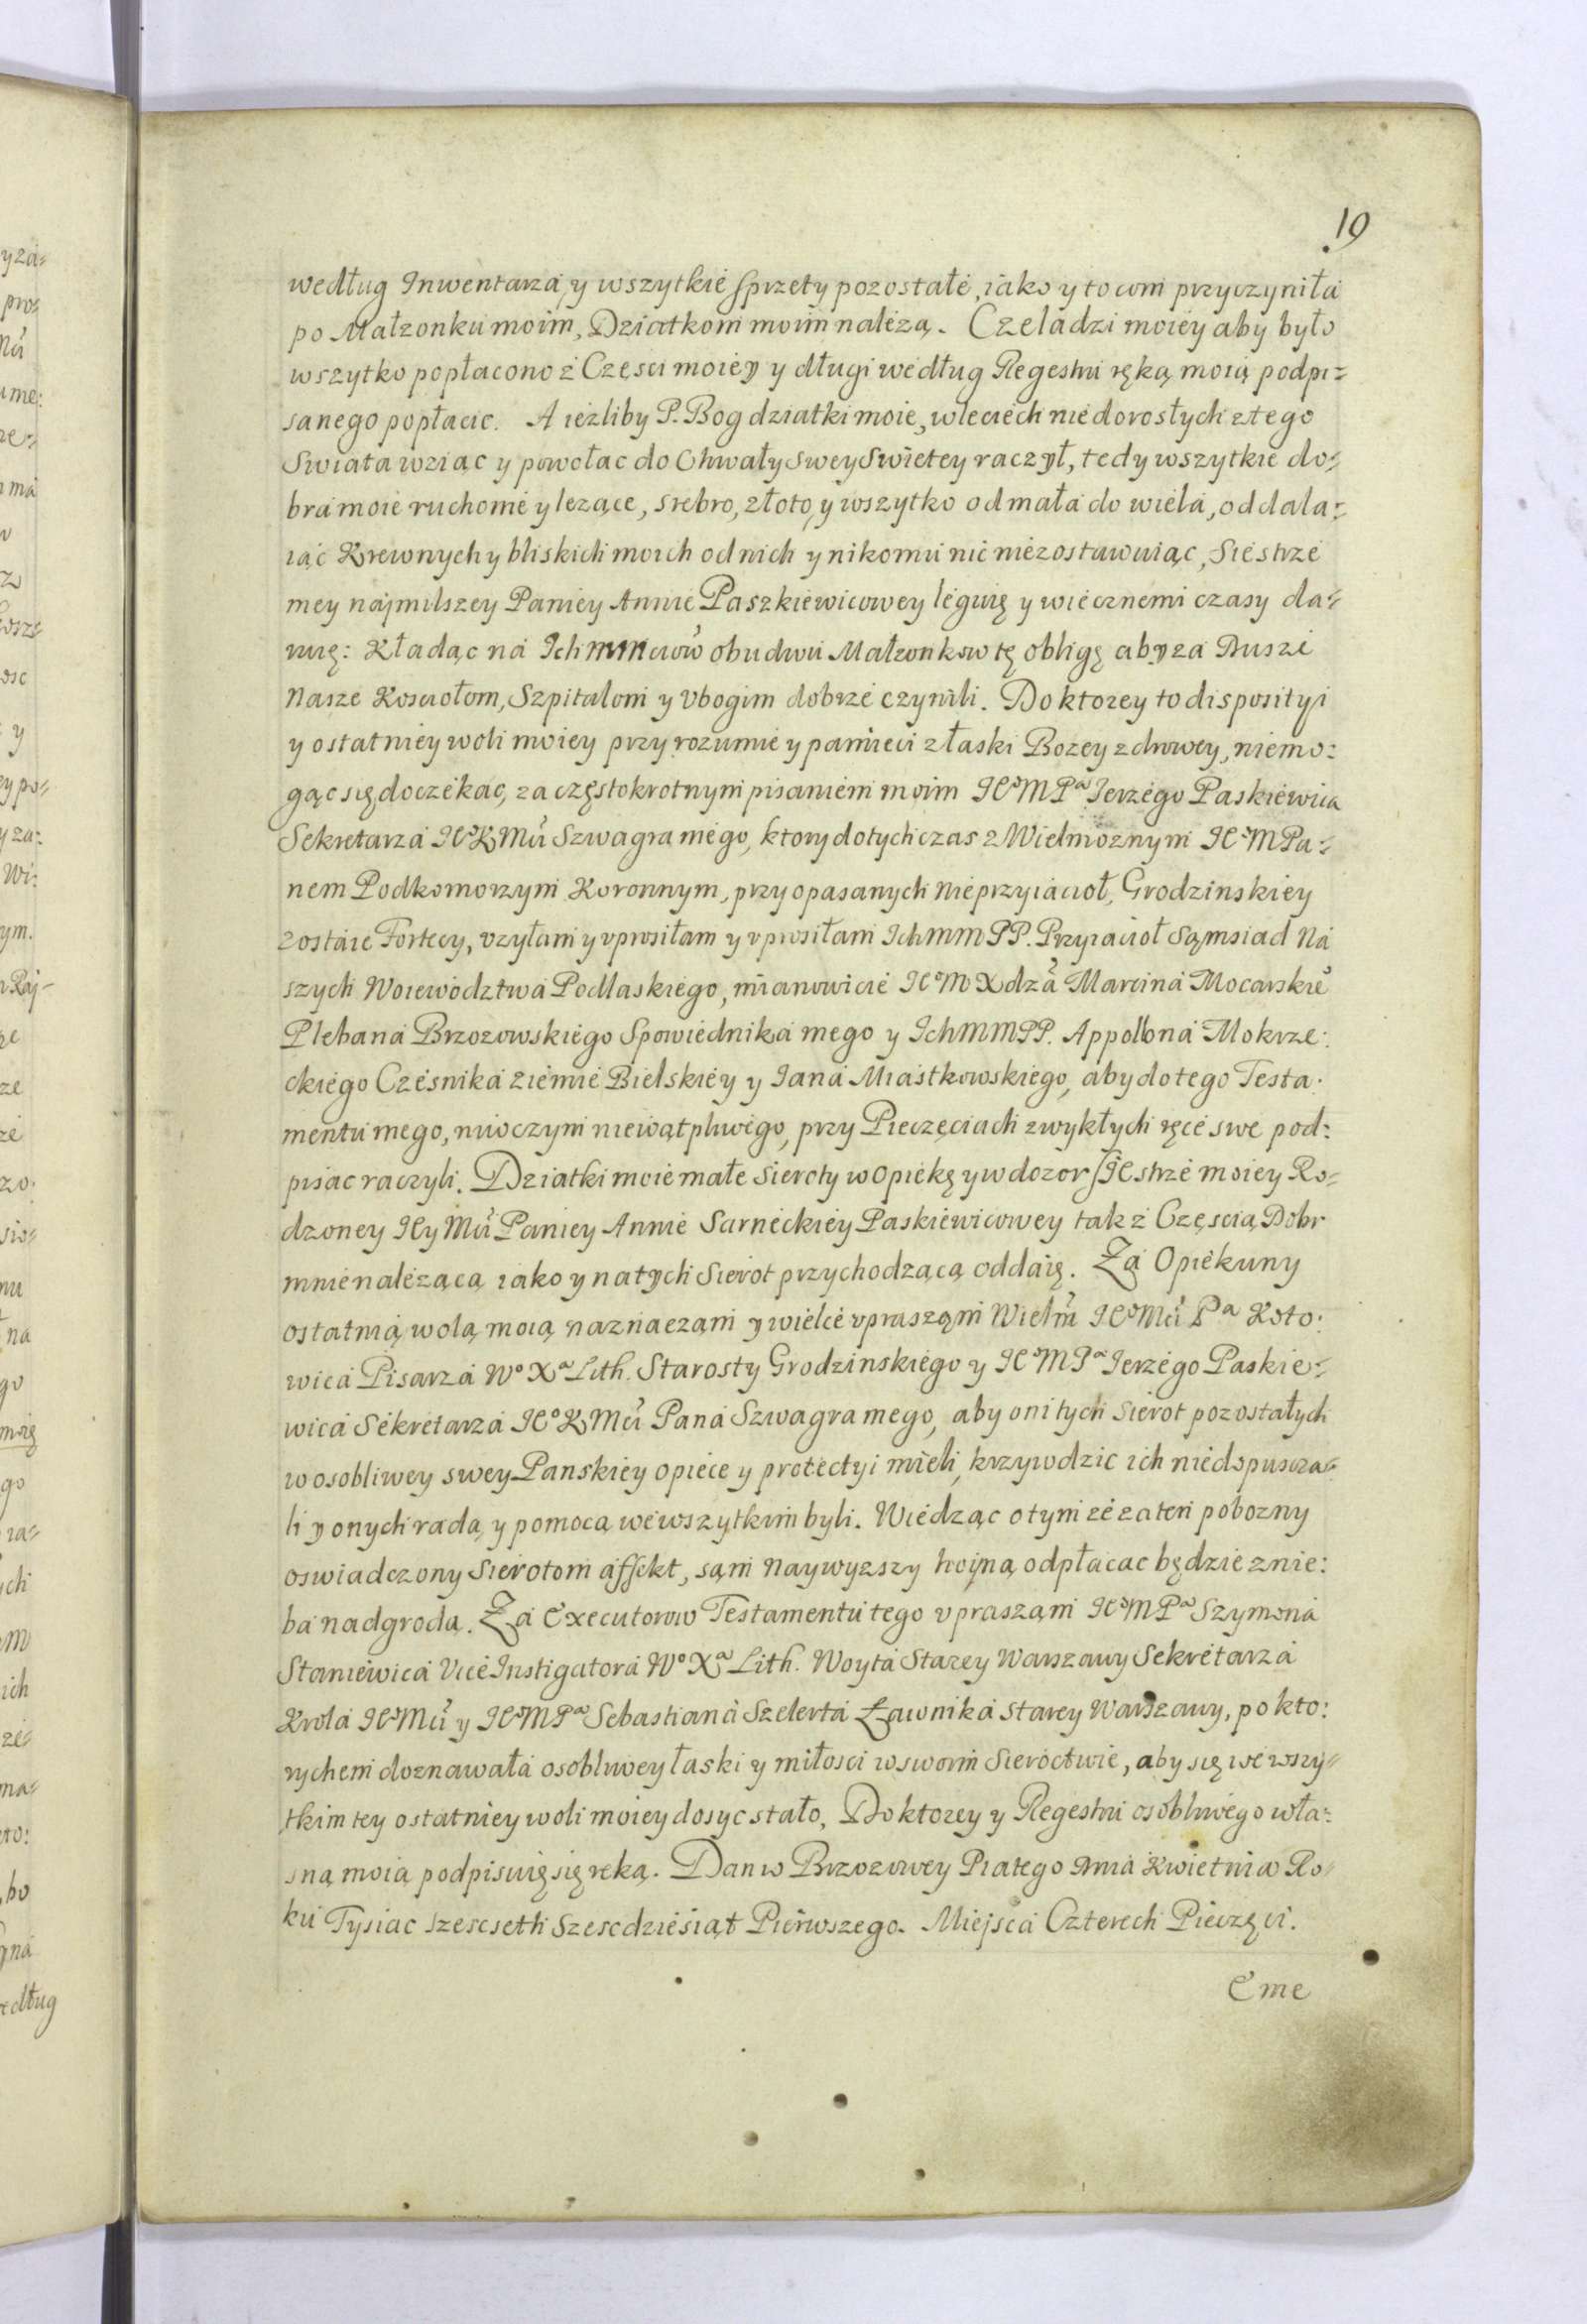 19
według Inwentarzá, y wszytkié sprzety pozostałé, iáko y to com przyczyniłá
po Małzonku moim, Dziatkom moim nalézą. Czeladzi moiéy aby było
wszytko popłacono z Częsci moiéy y długi według Regestru ręką moią podpi=
sanego popłacic. A ieźliby P. Bog dziatki moie, w leciech niédorosłych z tego
Swiatá wziąc y powołac do Chwały Swey Swietey raczył, tedy wszytkie do=
brá moié ruchomé y leząće, srebro, złoto, y wszytko od małá do wielá, oddala=
iąc Krewnych y bliskich moich od nich y nikomu nic niézostawuiąc, Siestrzé
mey najmilszey Paniey Annié Paszkiéwicowey léguię y wiécznemi czasy da=
ruię: Kładąc ná Ichmmciow obudwu Małzonkow tę obligę aby zá Duszé
Nasze Kosciołom, Szpitalom y Vbogim dobrzé czynili. Do ktorey to disposityi
y ostatniéy woli moiey przy rozumié y pamięci z łaski Bozey zdrowey, niémo:
gąc się doczékác, zá częstokrotnym pisaniem moim JE°MPa Jerzégo Paskiéwicá
Sekretarzá JE°KMci Szwagra mégo, ktory dotychczas z Wielmoznym JE°MPa=
nem Podkomorzym Koronnym, przy opasanych Niéprzyiácioł, Grodzinskiéy
zostáié Fortecy, vzyłam y vprosiłam y vprosiłam IchmmPP. Przyiacioł Sąmsiad Ná
szych Woiéwództwá Podlaskiégo, mianowicié JE°MXdzá Marciná Mocarskié
Plebaná Brzozowskiégo Spowiédniká mego y IchmmPP. Appolloná Mokrze:
ckiégo Czésniká ziémié Biélskiéy y Janá Miástkowskiégo, áby do tego Testa:
mentu mego, nwoczym niéwątpliwégo, przy Pieczęciach zwykłych ręcé swe pod:
pisac raczyli. Dziatki moié małe Siéroty w Opiekę y w dozor SiEstrzé moiey Ro=
dzoney JEyMci Paniey Annié Sarnéckiéy Paskiéwicowey tak z Częscią Dobr
mnié nalézącą iáko y ná tych Siérot przychodzącą oddáię. Zá Opiékuny
ostatnią wolą moią náznacząm y wiélcé vprasząm Wielm JE°Mci Pa Koto:
wicá Pisarzá W°Xa Lith. Starosty Grodzinskiégo y JE°MPa Jerzégo Paskié=
wicá Sékretarzá JE°KMci Paná Szwagra mego, aby oni tych Siérot pozostałych
w osobliwey swey Panskiéy opiécé y protectyi miéli, krzywdzic ich niédopuszcza=
li y onych radą y pomocą wéwszytkim byli. Wiédząc o tym zé zá ten pobozny
oswiadczony Siérotom affekt, sąm Naywyzszy hoyną odpłacac będzié z nie:
bá nadgrodą. Zá Executorow Testamentu tego vprasząm JE°MPa Szymoná
Staniéwicá Vicé Instigatorá W°Xa Lith. Woytá Starey Warszawy Sekrétarzá
Krolá JE°Mci y JE°MPa Sebastianá Szelertá Ławniká Starey Warszawy, po kto:
rychem doznawałá osobliwey łaski y miłosci w swoim Siéroctwié, aby się wé wszy=
tkim tey ostatniey woli moiey dosyc stało, Do ktorey y Regestru osobliwégo wła=
sną moią podpisuię się ręką. Dan w Brzozowey Piątego Dniá Kwiétniá Ro=
ku Tysiąc szescseth Szescdziésiąt Piérwszego. Miéjscá Czterech Pieczęci.
Eme